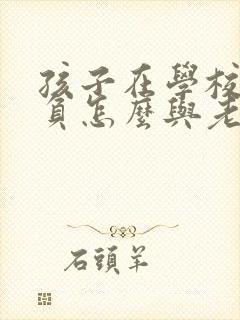 孩子在學校
負怎麼與老
石頭羊